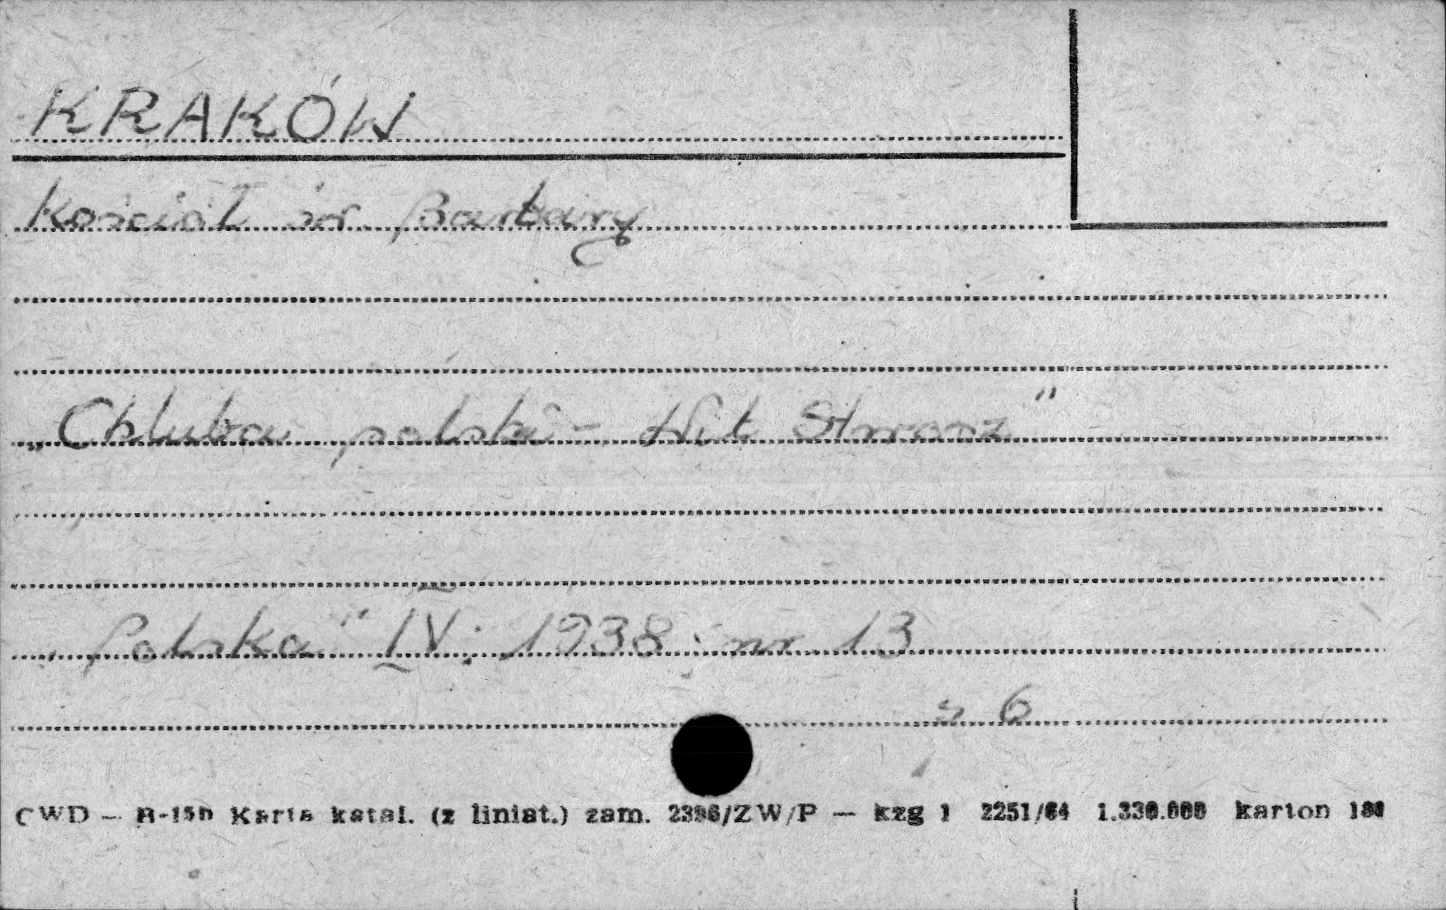 KRAKÓW
Kościół św. Barbary
„Chluba polski - Wit Stwosz"
„Polska" IV: 1938: nr. 13
s 6
CWD — B-15b Karta katal. (z liniat.) zam. 2396/ZW/P — kzg 1 2251/64 1.330.000 karton 180